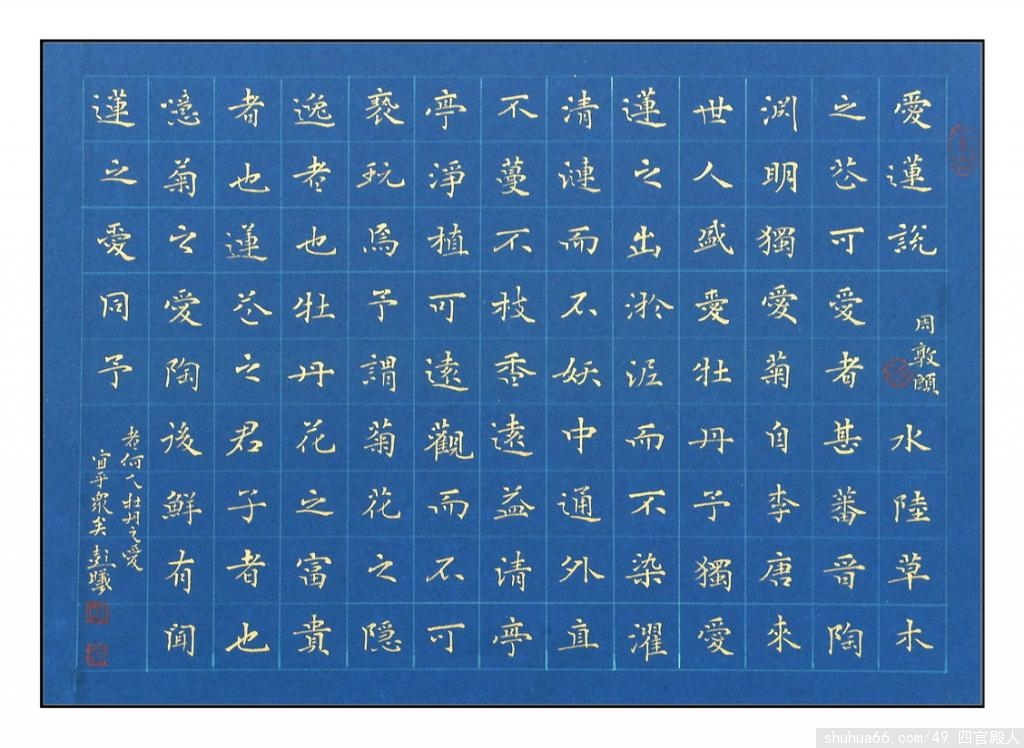 愛蓮說 周敦頤 水陸草木
之花可愛者甚蕃晉陶
渕明獨愛菊自李唐來
世人盛愛牡丹予獨愛
蓮之出淤泥而不染濯
清漣而不妖中通外直
不蔓不枝香遠益清亭
亭淨植可遠觀而不可
褻玩焉予謂菊花之隱
逸者也牡丹花之富貴
者也蓮花之君子者也
噫菊之愛陶後鮮有聞
蓮之愛同予
者何人牡丹之愛
宜乎衆矣 彭曦
shuhua66.com/49 四官殿人